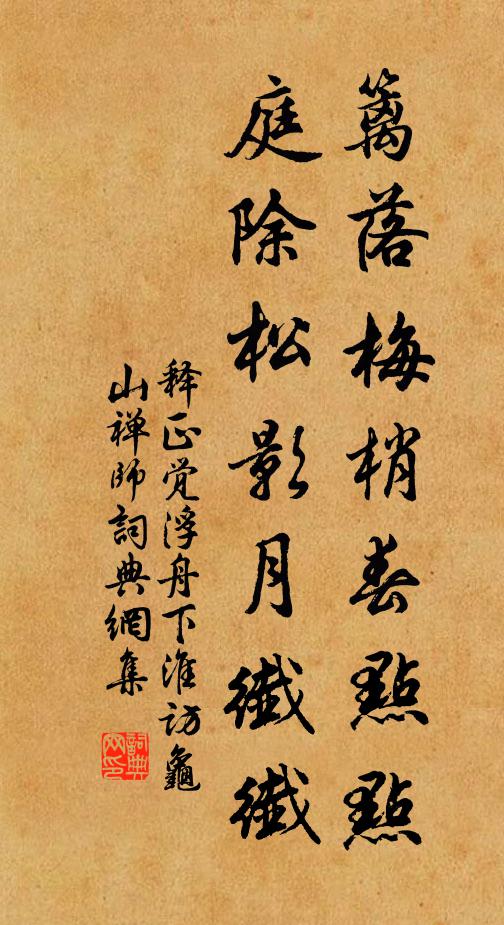 籬落梅梢春點點
庭除松影月纖纖
释正觉浮舟下淮访龜
山禅師詞典網集
詞典
网印